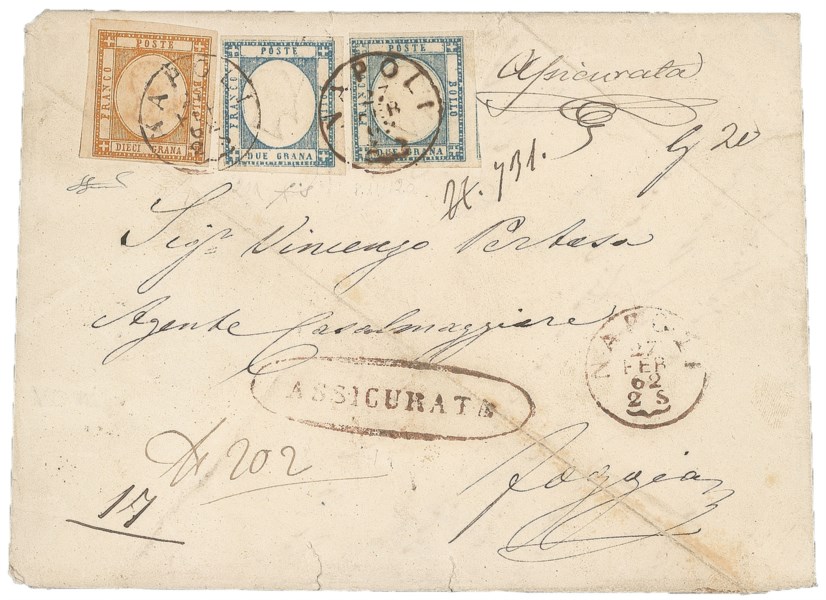 POSTE
FRANCO
DIECI GRANA
NAPOLI
POSTE
FRANCO
DUE GRANA
POSTE
FRANCO
BOLLO
DUE GRANA
NAPOLI
Assicurata
g 20
731.
Sigr Vincenzo Pertosa
Agente Casalmaggiore
NAPOLI
27
FEB
62
2 S
ASSICURATA
202
17
Foggia